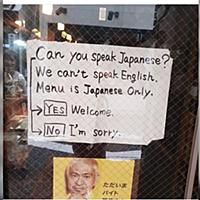 Can you speak Japanese?
We can't speak English.
Menu is Japanese Only.
→ YES Welcome.
→ NO I'm sorry.
ただいま
バイト